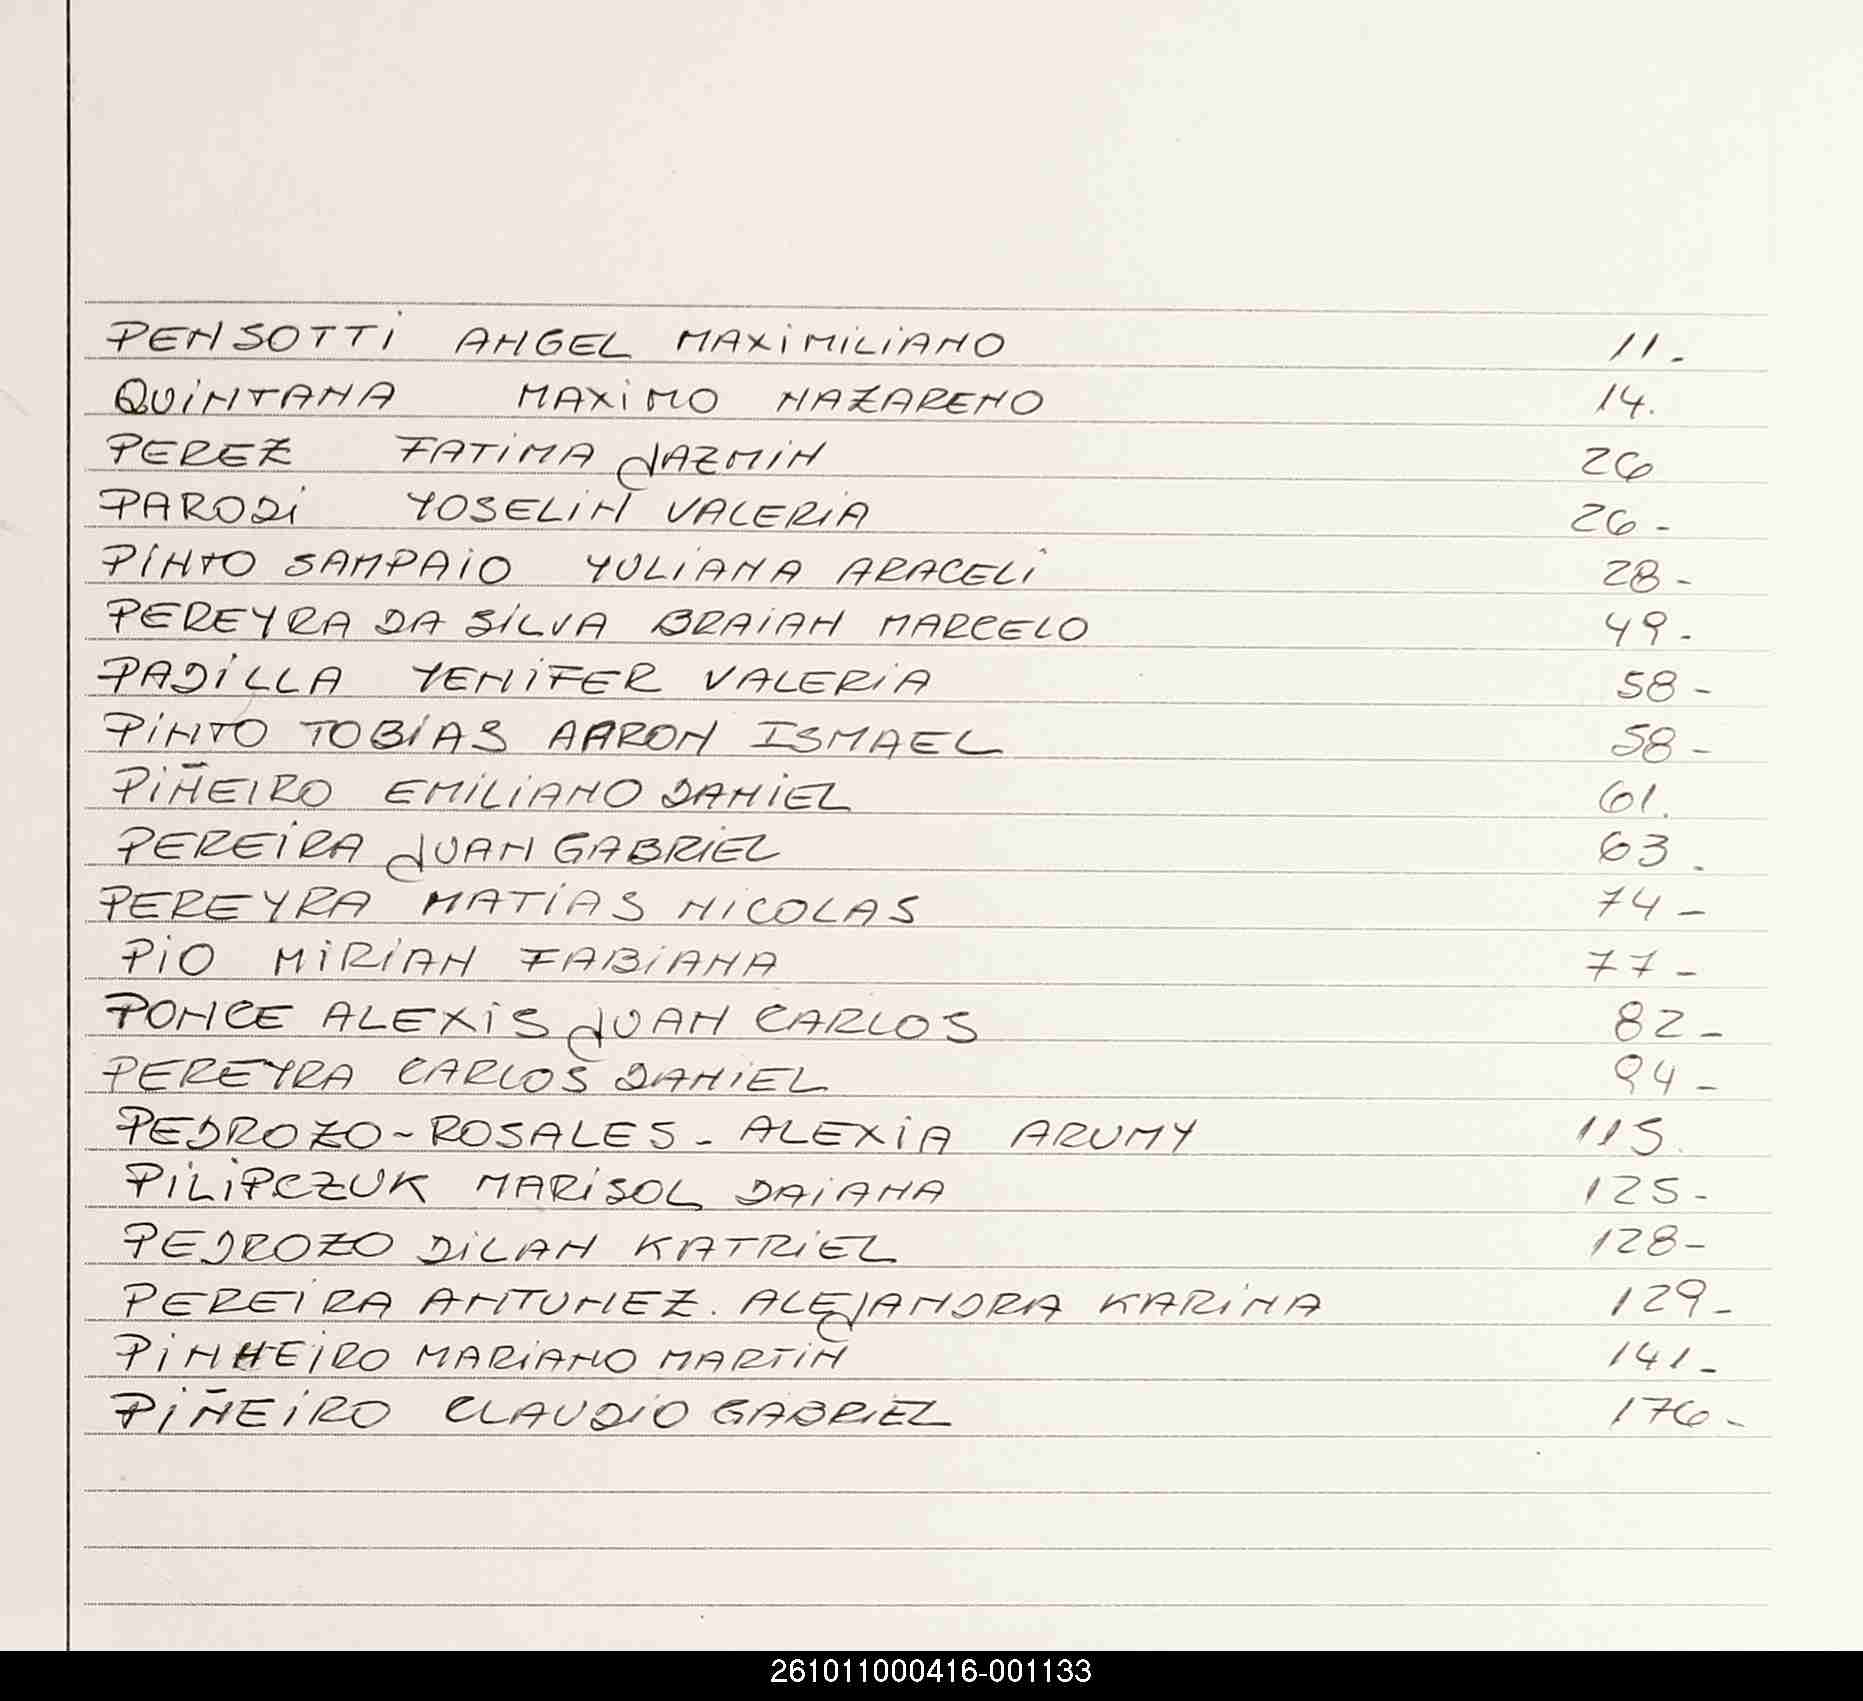 PENSOTTI ANGEL MAXIMILIANO 11.
QUINTANA MAXIMO NAZARENO 14.
PEREZ FATIMA JAZMIN 26
PARODI YOSELIN VALERIA 26-
PINTO SAMPAIO YULIANA ARACELI 28-
PEREYRA DA SILVA BRAIAN MARCELO 49-
PADILLA YENIFER VALERIA 58-
PINTO TOBIAS AARON ISMAEL 58-
PIÑEIRO EMILIANO DANIEL 61.
PEREIRA JUAN GABRIEL 63.
PEREYRA MATIAS NICOLAS 74-
PIO MIRIAN FABIANA 77-
PONCE ALEXIS JUAN CARLOS 82-
PEREYRA CARLOS DANIEL 94-
PEDROZO-ROSALES- ALEXIA ARUMY 115.
PILIPCZUK MARISOL DAIANA 125-
PEDROZO DILAN KATRIEL 128-
PEREIRA ANTUNEZ. ALEJANDRA KARINA 129-
PINHEIRO MARIANO MARTIN 141-
PIÑEIRO CLAUDIO GABRIEL 176-
261011000416-001133